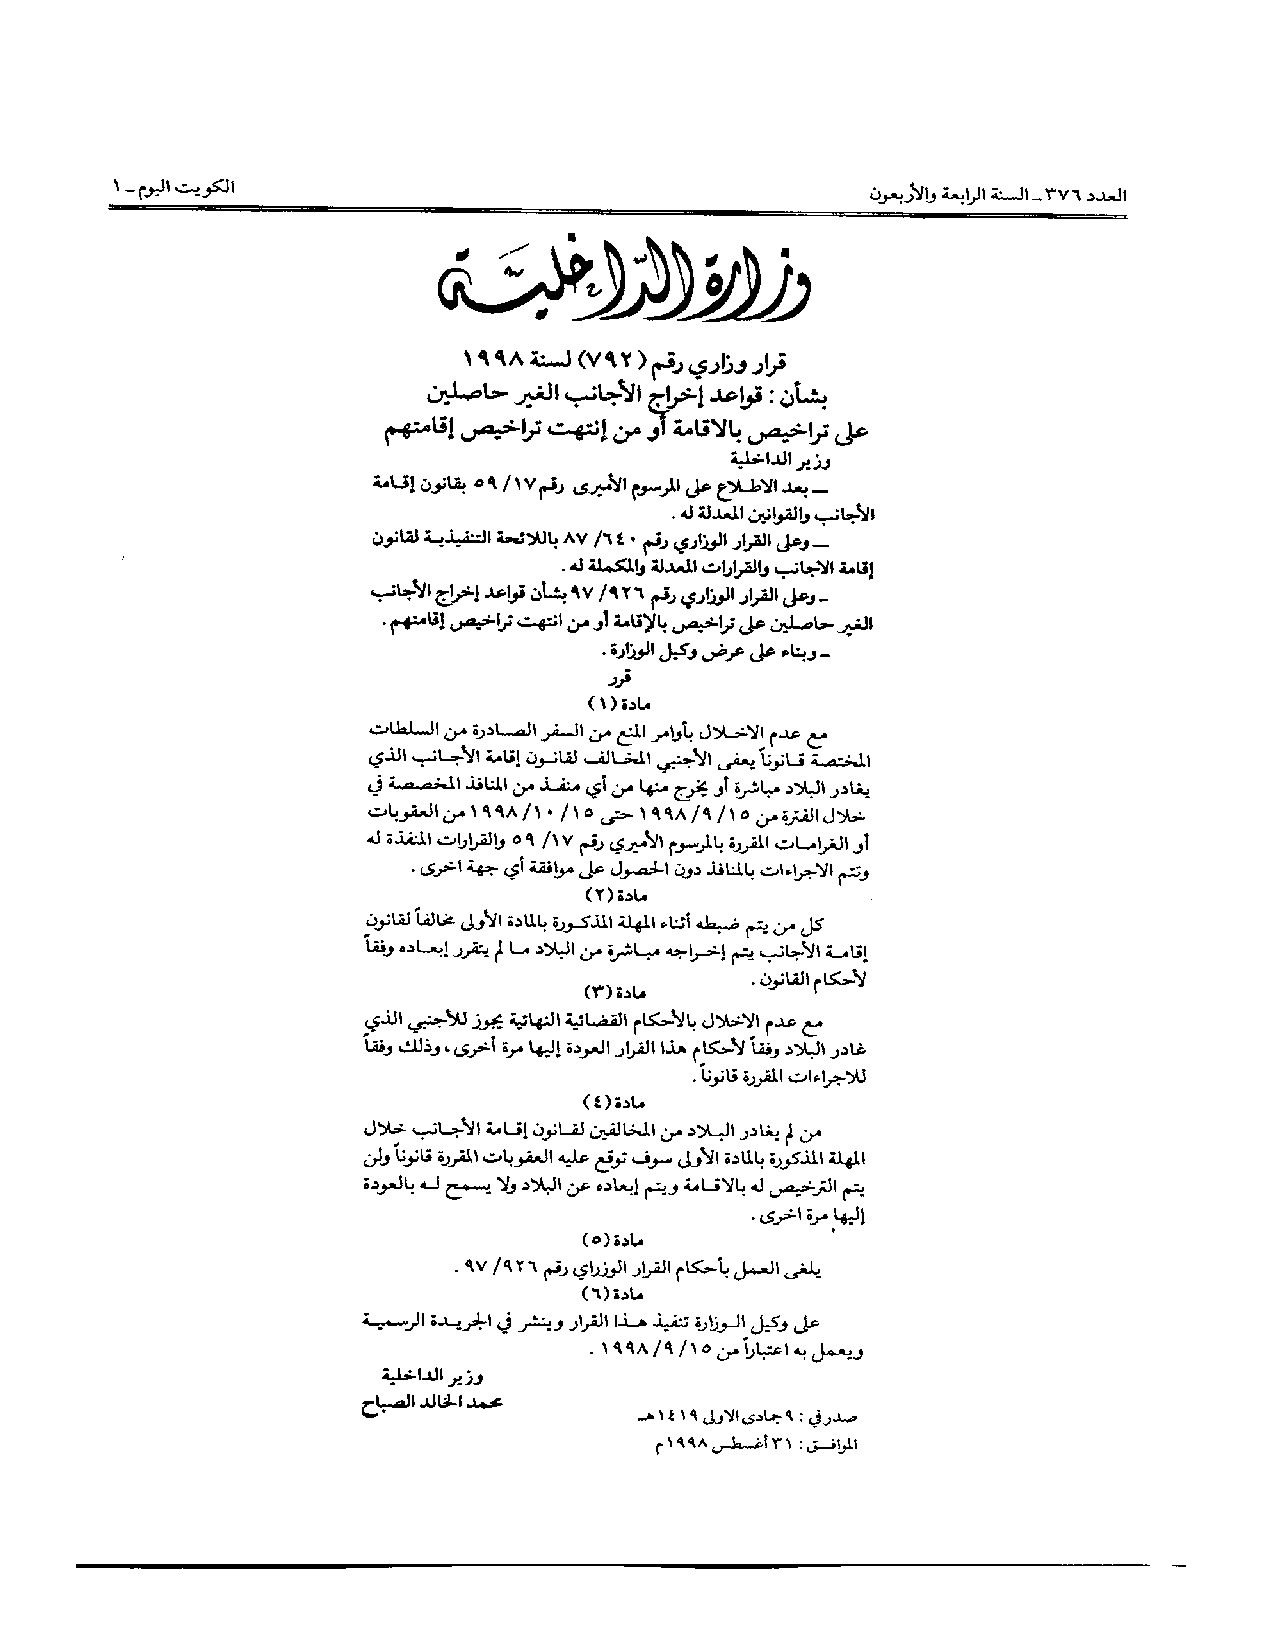 العدد ٣٧٦ - السنة الرابعة والأربعون
الكويت اليوم - ١
وزارة الداخلية
قرار وزاري رقم (٧٩٢) لسنة ١٩٩٨
بشأن : قواعد إخراج الأجانب الغير حاصلين
على تراخيص بالاقامة أو من إنتهت تراخيص إقامتهم
وزير الداخلية
- بعد الاطلاع على المرسوم الأميرى رقم ١٧/ ٥٩ بقانون إقامة
الأجانب والقوانين المعدلة له .
- وعلى القرار الوزاري رقم ٦٤٠/ ٨٧ باللائحة التنفيذية لقانون
إقامة الاجانب والقرارات المعدلة والمكملة له .
- وعلى القرار الوزاري رقم ٩٢٦/ ٩٧ بشأن قواعد إخراج الأجانب
الغير حاصلين على تراخيص بالإقامة أو من انتهت تراخيص إقامتهم .
- وبناء على عرض وكيل الوزارة .
قرر
مادة (١)
مع عدم الاخلال بأوامر المنع من السفر الصادرة من السلطات
المختصة قانوناً يعفى الأجنبي المخالف لقانون إقامة الأجانب الذي
يغادر البلاد مباشرة أو يخرج منها من أي منفذ من المنافذ المخصصة في
خلال الفترة من ١٥/ ٩/ ١٩٩٨ حتى ١٥/ ١٠/ ١٩٩٨ من العقوبات
أو الغرامات المقررة بالمرسوم الأميري رقم ١٧/ ٥٩ والقرارات المنفذة له
وتتم الاجراءات بالمنافذ دون الحصول على موافقة أي جهة اخرى .
مادة (٢)
كل من يتم ضبطه أثناء المهلة المذكورة بالمادة الأولى مخالفاً لقانون
إقامة الأجانب يتم إخراجه مباشرة من البلاد ما لم يتقرر إبعاده وفقاً
لأحكام القانون .
مادة (٣)
مع عدم الاخلال بالأحكام القضائية النهائية يجوز للأجنبي الذي
غادر البلاد وفقاً لأحكام هذا القرار العودة إليها مرة أخرى، وذلك وفقاً
للاجراءات المقررة قانوناً .
مادة (٤)
من لم يغادر البلاد من المخالفين لقانون إقامة الأجانب خلال
المهلة المذكورة بالمادة الأولى سوف توقع عليه العقوبات المقررة قانوناً ولن
يتم الترخيص له بالاقامة ويتم إبعاده عن البلاد ولا يسمح له بالعودة
إليها مرة اخرى .
مادة (٥)
يلغى العمل بأحكام القرار الوزراي رقم ٩٢٦/ ٩٧ .
مادة (٦)
على وكيل الوزارة تنفيذ هذا القرار وينشر في الجريدة الرسمية
ويعمل به اعتباراً من ١٥/ ٩/ ١٩٩٨ .
وزير الداخلية
محمد الخالد الصباح
صدر في : ٩ جمادى الاولى ١٤١٩هـ
الموافق : ٣١ أغسطس ١٩٩٨م